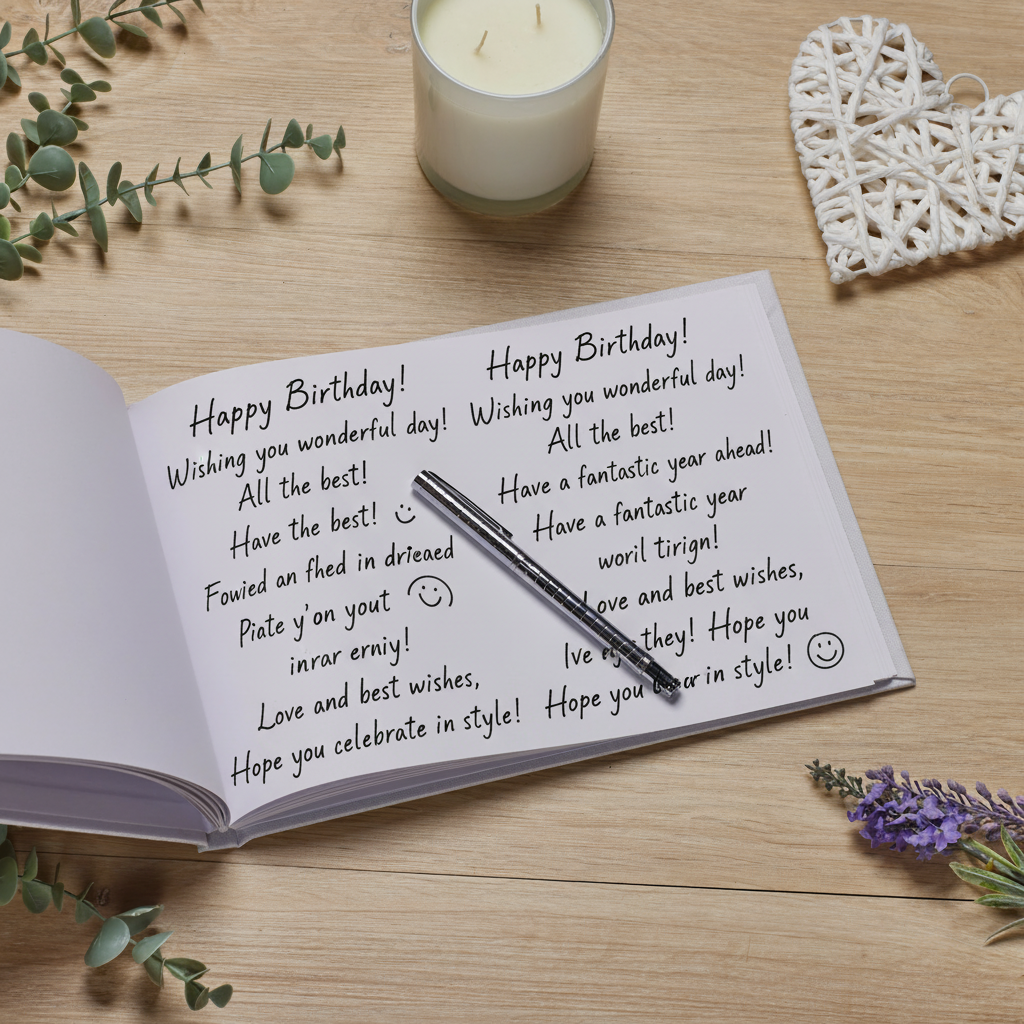 Happy Birthday!
Wishing you wonderful day!
All the best!
Have the best!
Fowied an fhed in drieaed
Piate y'on yout
inrar erniy!
Love and best wishes,
Hope you celebrate in style!
Happy Birthday!
Wishing you wonderful day!
All the best!
Have a fantastic year ahead!
Have a fantastic year
woril tirign!
Love and best wishes,
Ive they! Hope you
Hope you in style!